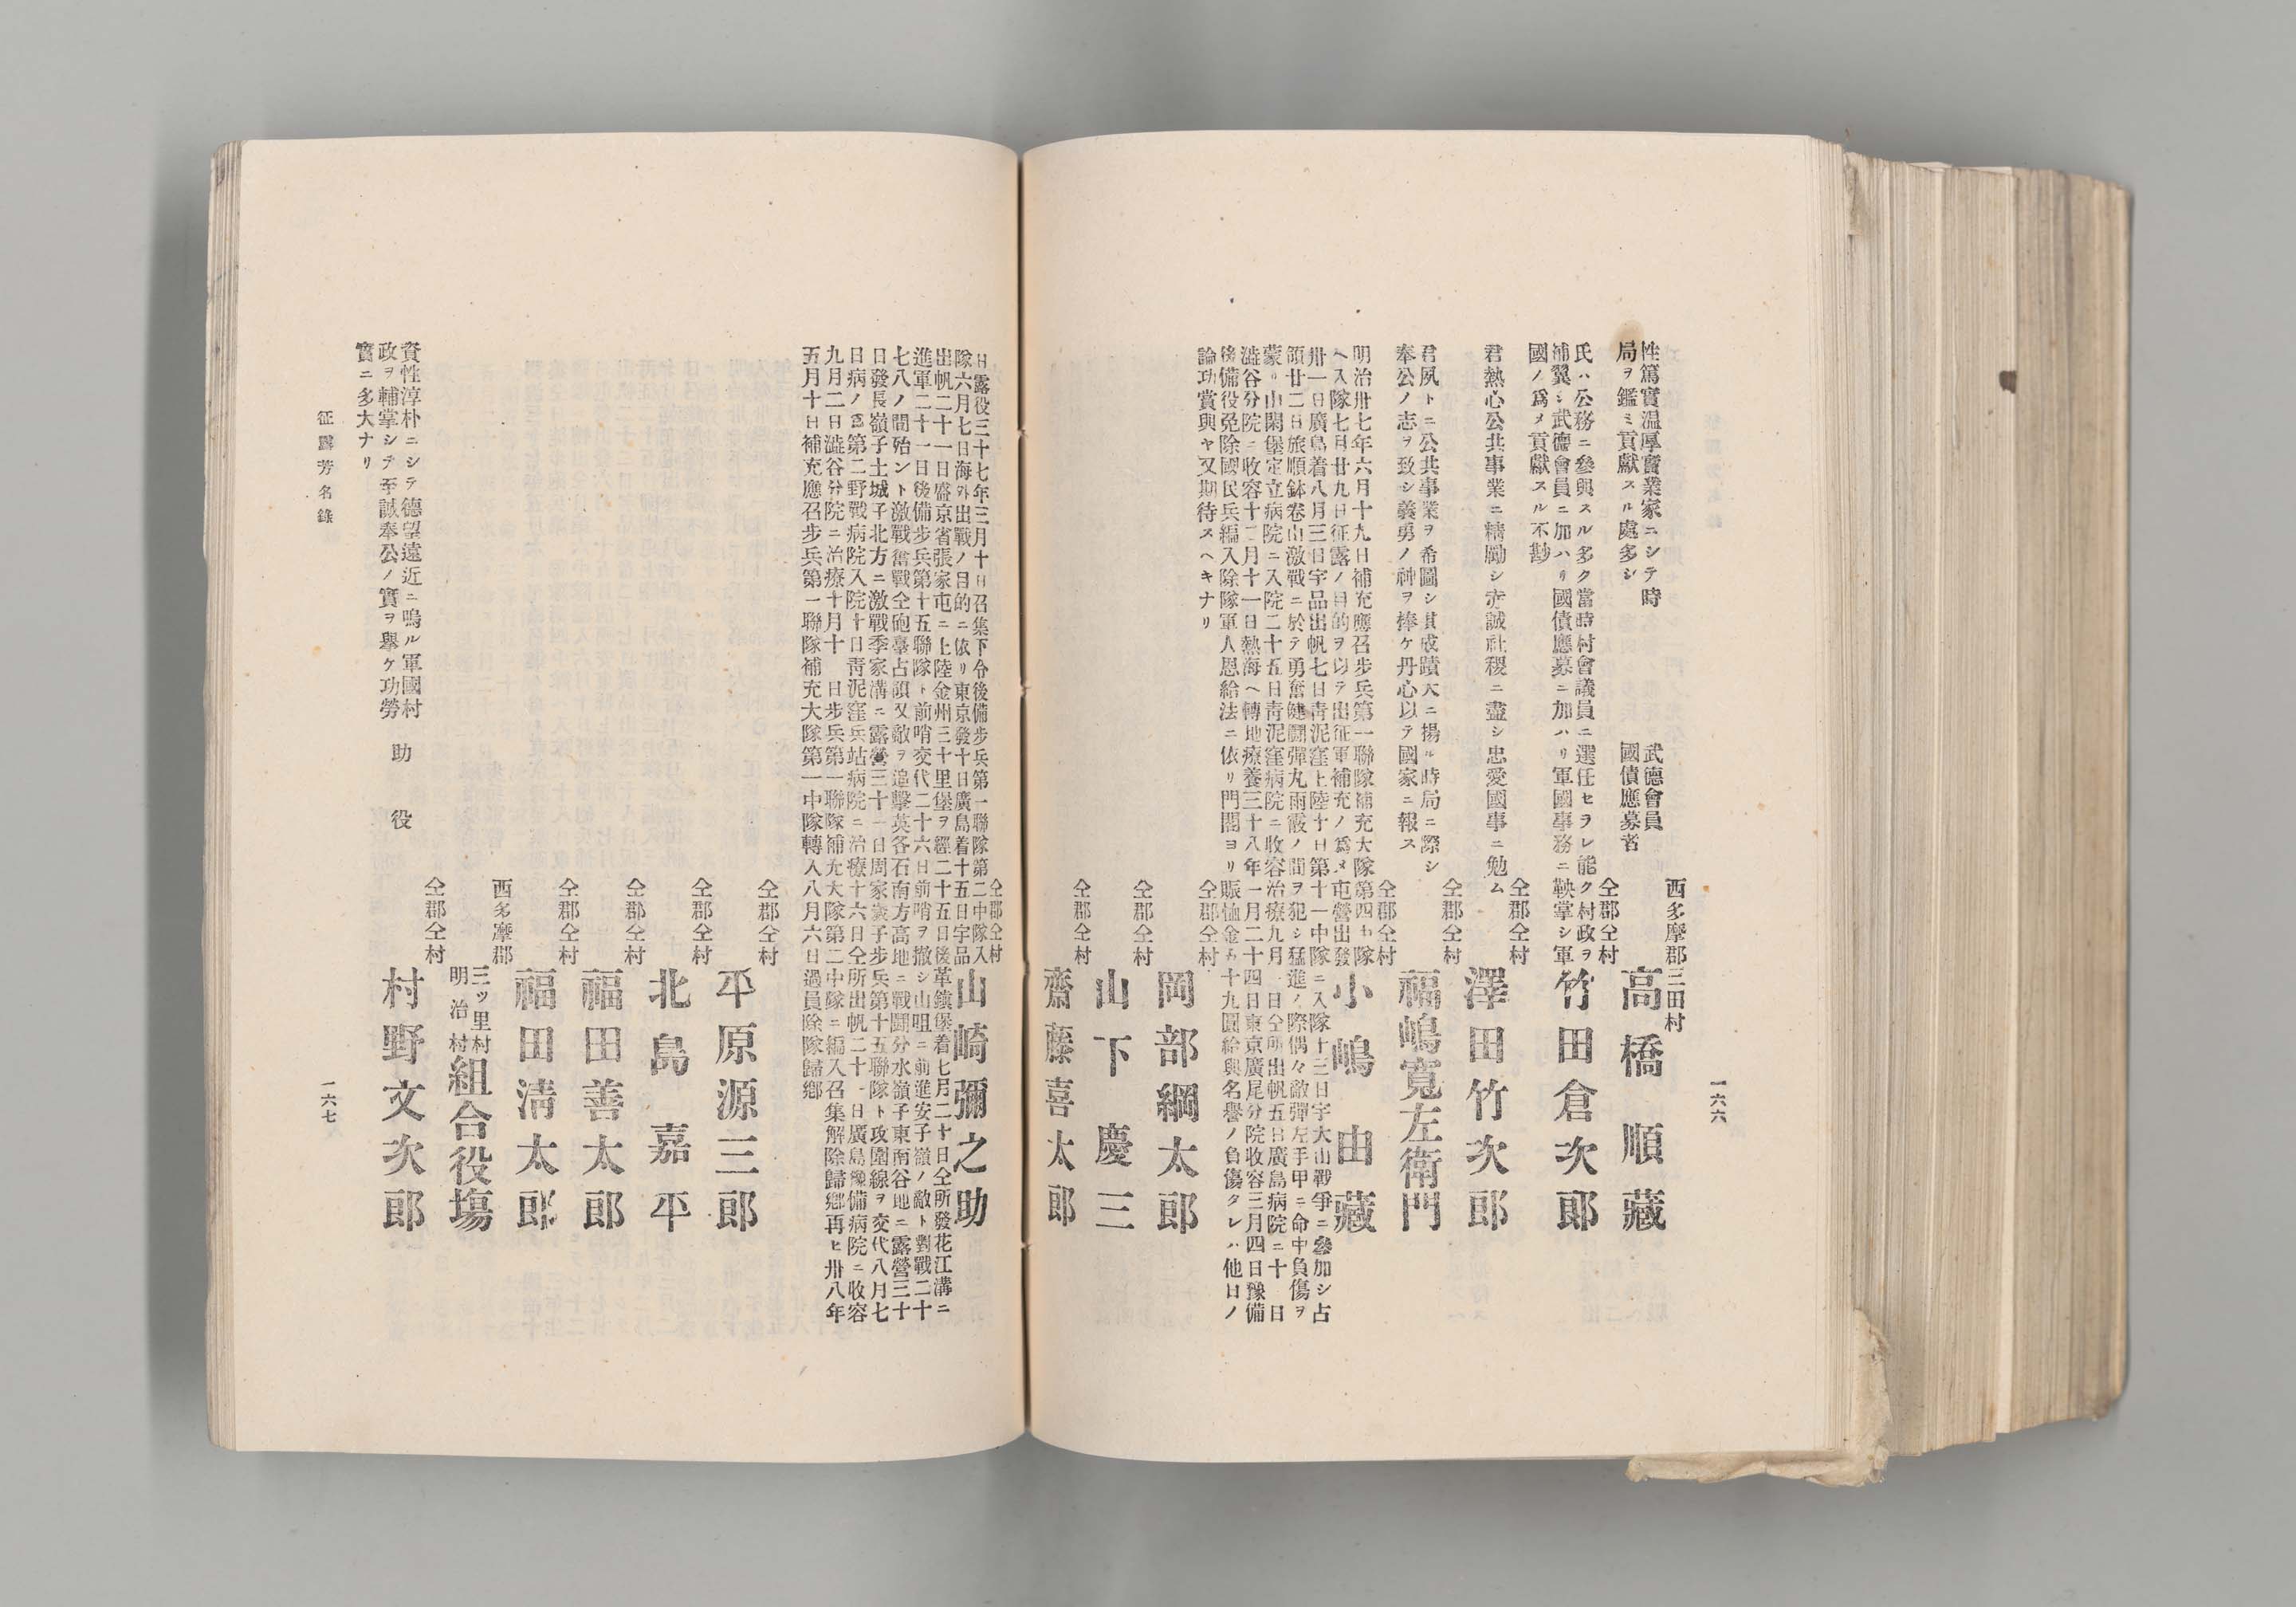 一六六
西多摩郡三田村
武德會員
國債應募者
高橋順藏
性篤實温厚實業家ニシテ時
局ヲ鑑ミ貢獻スル處多シ
仝郡仝村
竹田倉次郎
氏ハ公務ニ參與スル多ク當時村會議員ニ選任セラレ能ク村政ヲ
補翼シ武德會員ニ加ハリ國債應募ニ加ハリ軍國事務ニ鞅掌シ軍
國ノ爲メ貢獻スル不尠
仝郡仝村
澤田竹次郎
君熱心公共事業ニ精勵シ赤誠社稷ニ盡シ忠愛國事ニ勉ム
仝郡仝村
福嶋寬左衛門
君夙トニ公共事業ヲ希圖シ其成蹟大ニ揚ル時局ニ際シ
奉公ノ志ヲ致シ義勇ノ神ヲ捧ケ丹心以テ國家ニ報ス
仝郡仝村
小嶋由藏
明治卅七年六月十九日補充應召步兵第一聯隊補充大隊第四中隊
ヘ入隊七月廿九日征露ノ目的ヲ以テ出征軍補充ノ爲メ屯營出發
卅一日廣島着八月三日宇品出帆七日靑泥窪上陸十日第十一中隊ニ入隊十三日宇大山戰爭ニ參加シ占
領廿二日旅順鉢卷山激戰ニ於テ勇奮健鬪彈丸雨霰ノ間ヲ犯シ猛進ノ際偶々敵彈左手甲ニ命中負傷ヲ
蒙リ山閑堡定立病院ニ入院二十五日靑泥窪病院ニ收容治療九月一日仝所出帆五日廣島病院ニ十一日
澁谷分院ニ收容十二月十一日熱海ヘ轉地療養三十八年一月二十四日東京廣尾分院收容三月四日豫備
後備役免除國民兵編入除隊軍人恩給法ニ依リ門閥ヨリ賑恤金百十九圓給與名譽ノ負傷タレハ他日ノ
論功賞與ヤ又期待スヘキナリ
仝郡仝村
岡部綱太郎
仝郡仝村
山下慶三
仝郡仝村
齋藤喜太郎
仝郡仝村
山崎彌之助
日露役三十七年三月十日召集下令後備步兵第一聯隊第二中隊入
隊六月七日海外出戰ノ目的ニ依リ東京發十日廣島着十五日宇品
出帆二十一日盛京省張家屯ニ上陸金州三十里堡ヲ經二十五日後革鎭堡着七月二十日仝所發花江溝ニ
進軍二十一日後備步兵第十五聯隊ト前哨交代二十六日前哨ヲ撤シ山咀ニ前進安子嶺ノ敵ト對戰二十
七八ノ間殆ント激戰奮戰仝砲臺占領又敵ヲ追擊英各石南方高地ニ戰鬪分水嶺子東南谷地ニ露營三十
日發長嶺子土城子北方ニ激戰季家溝ニ露營三十一日周家嶴子步兵第十五聯隊ト攻圍線ヲ交代八月七
日病ノ爲第二野戰病院入院十日靑泥窪兵站病院ニ治療十六日仝所出帆二十一日廣島豫備病院ニ收容
九月二日澁谷分院ニ治療十月十一日步兵第一聯隊補充大隊第二中隊ニ編入召集解除歸鄕再ヒ卅八年
五月十日補充應召步兵第一聯隊補充大隊第一中隊轉入八月六日過員除隊歸鄕
仝郡仝村
平原源三郎
仝郡仝村
北島嘉平
仝郡仝村
福田善太郎
仝郡仝村
福田淸太郎
西多摩郡
三ツ里村
明治村
組合役塲
仝郡仝村
助役
村野文次郎
資性淳朴ニシテ德望遠近ニ鳴ル軍國村
政ヲ輔掌シテ至誠奉公ノ實ヲ擧ケ功勞
實ニ多大ナリ
征露芳名錄
一六七